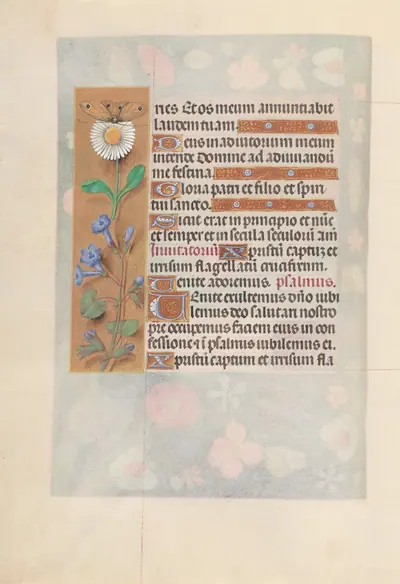 ries Et os meum annuntiabit
laudem tuam.
Deus in adiutorium meum
intende Domine ad adiuuandū
me festina.
Gloria patri et filio et spiri
tui sancto.
Sicut erat in principio et nūc
et semper et in secula seculorū am̄
Inuitatoriū Xpristū captū et
irrisum flagellatū crucifixum.
Uenite adoremus. psalmus.
Uenite exultemus dño iubi
lemus deo salutari nostro
pre occupemus faciem eius in con
fessione et ī psalmis iubilemus ei.
Xpristū captum et irrisum fla